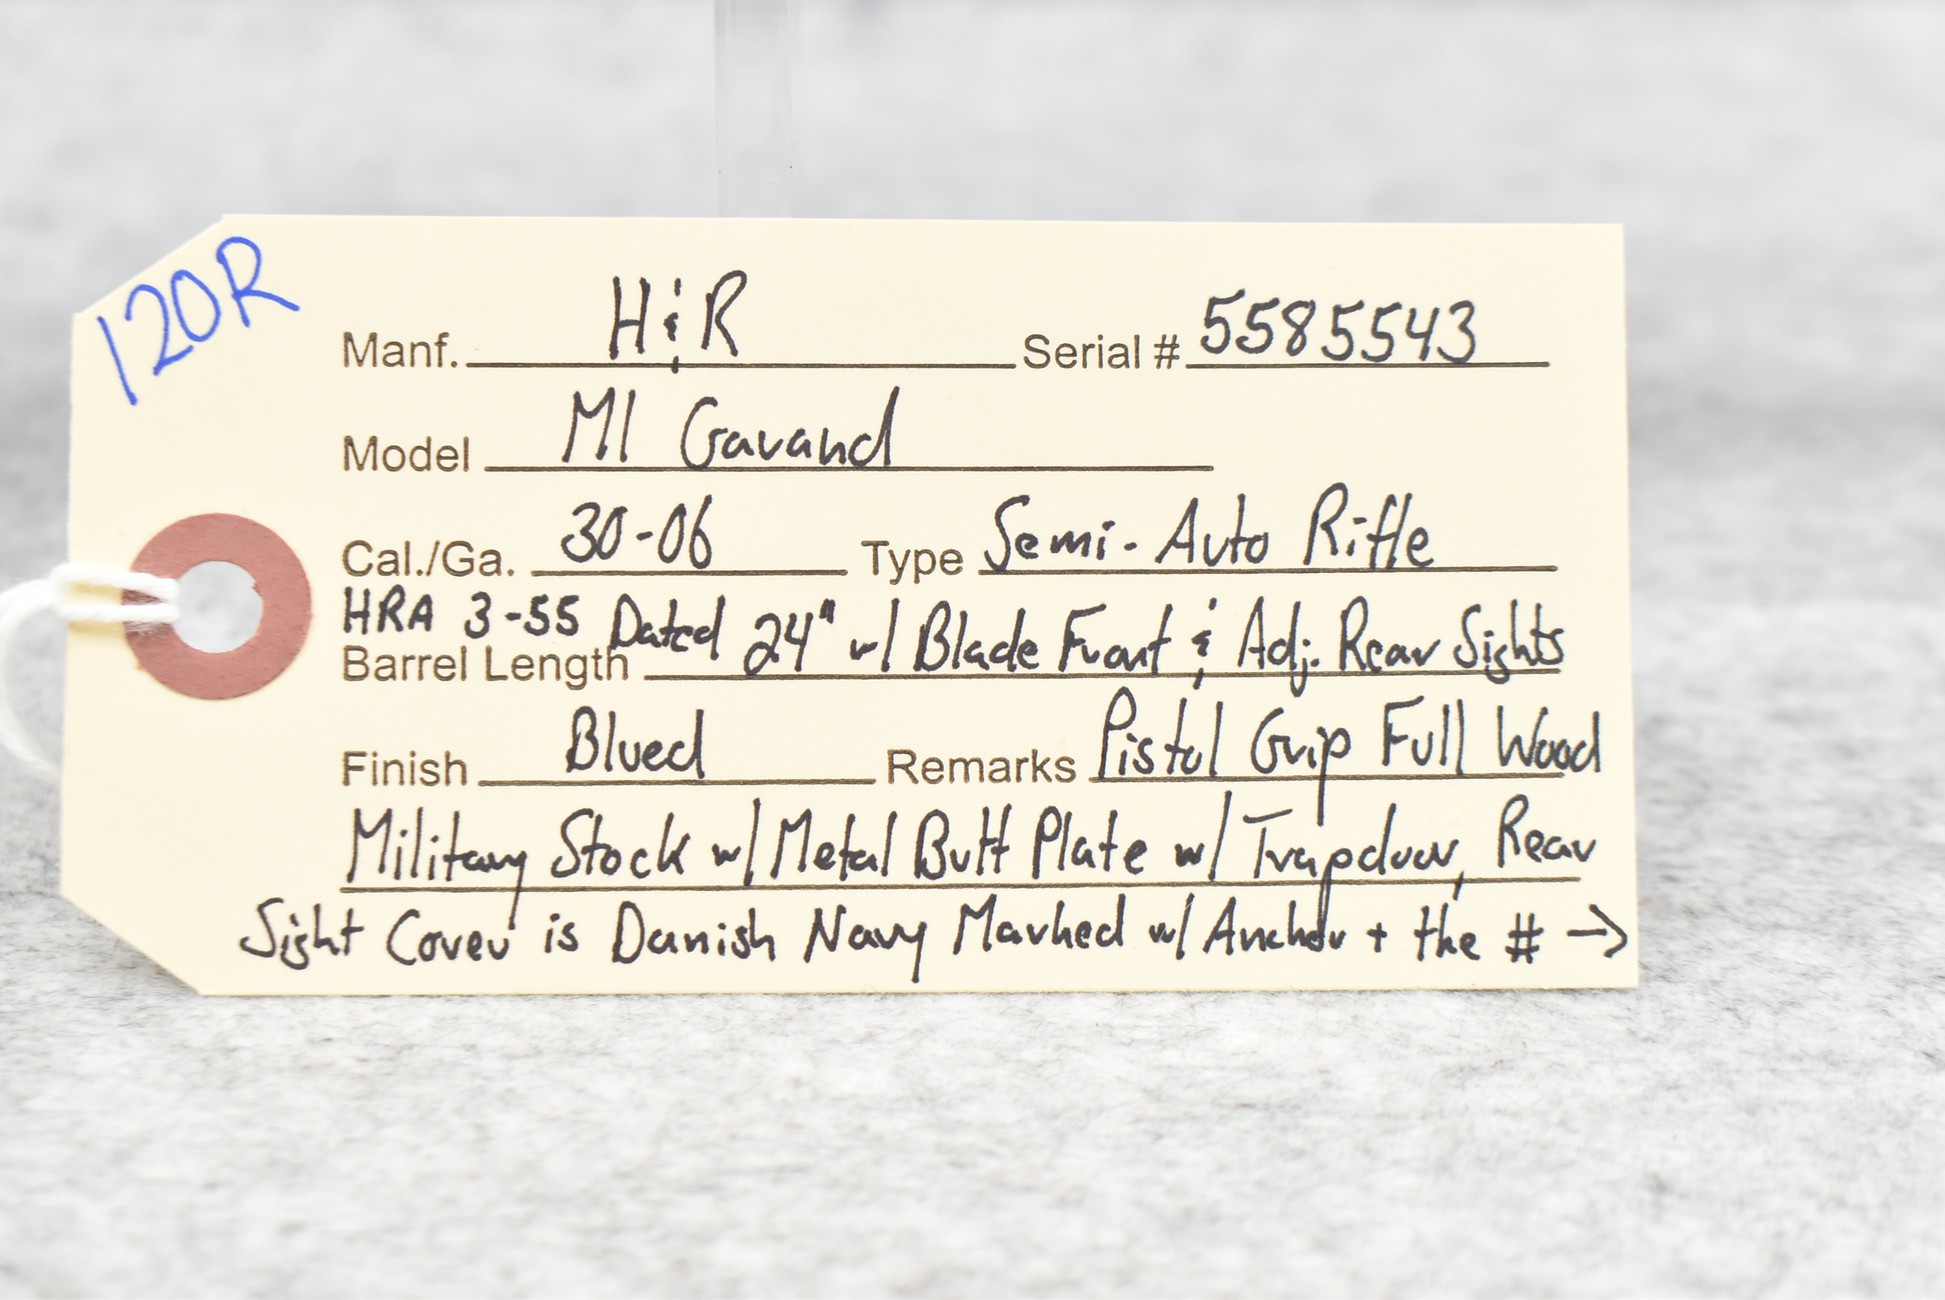 120R
Manf. H & R Serial # 5585543
Model M1 Garand
Cal./Ga. 30-06 Type Semi-Auto Rifle
HRA 3-55 Dated 24" w/ Blade Front & Adj. Rear Sights
Barrel Length
Finish Blued Remarks Pistol Grip Full Wood
Military Stock w/ Metal Butt Plate w/ Trapdoor, Rear
Sight Cover is Danish Navy Marked w/ Anchor + the # →